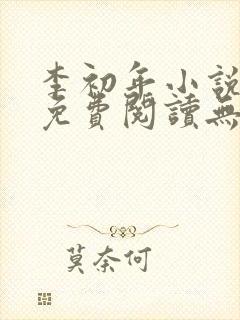 李初年小說
免費閱讀無
莫奈何